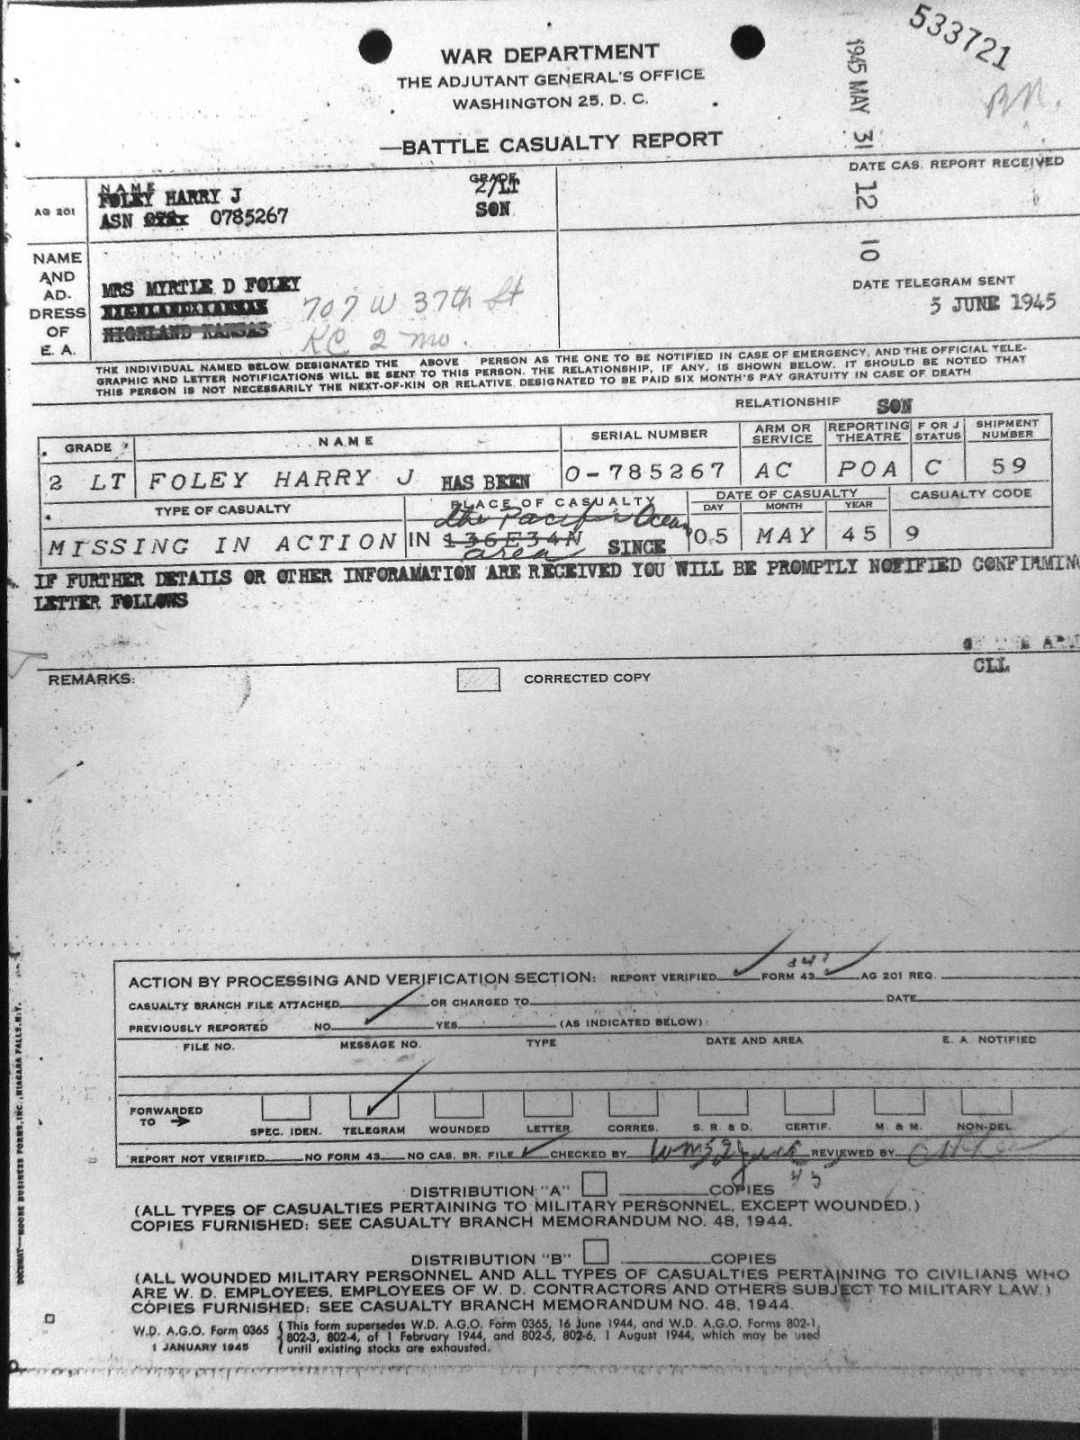 533721
WAR DEPARTMENT
THE ADJUTANT GENERAL'S OFFICE
WASHINGTON 25, D. C.
1945 MAY 31 12 10
BATTLE CASUALTY REPORT
DATE CAS. REPORT RECEIVED
NAME
GRADE
AG 201
FOLEY HARRY J
2/LT
ASN 0785267
SON
NAME AND ADDRESS OF E. A.
MRS MYRTLE D FOLEY
HIGHLAND KANSAS
HIGHLAND KANSAS
707 W 37th St
KC 2 mo.
DATE TELEGRAM SENT
5 JUNE 1945
THE INDIVIDUAL NAMED BELOW DESIGNATED THE ABOVE PERSON AS THE ONE TO BE NOTIFIED IN CASE OF EMERGENCY, AND THE OFFICIAL TELE-
GRAPHIC AND LETTER NOTIFICATIONS WILL BE SENT TO THIS PERSON. THE RELATIONSHIP, IF ANY, IS SHOWN BELOW. IT SHOULD BE NOTED THAT
THIS PERSON IS NOT NECESSARILY THE NEXT-OF-KIN OR RELATIVE DESIGNATED TO BE PAID SIX MONTH'S PAY GRATUITY IN CASE OF DEATH
RELATIONSHIP SON
GRADE NAME SERIAL NUMBER ARM OR SERVICE REPORTING THEATRE F OR J STATUS SHIPMENT NUMBER
2 LT FOLEY HARRY J HAS BEEN O-785267 AC POA C 59
TYPE OF CASUALTY PLACE OF CASUALTY DATE OF CASUALTY CASUALTY CODE
DAY MONTH YEAR
the Pacific Ocean
MISSING IN ACTION IN 136E34N SINCE 05 MAY 45 9
area
IF FURTHER DETAILS OR OTHER INFORAMATION ARE RECEIVED YOU WILL BE PROMPTLY NOTIFIED CONFIRMING
LETTER FOLLOWS
CLL
REMARKS:
CORRECTED COPY
ACTION BY PROCESSING AND VERIFICATION SECTION: REPORT VERIFIED FORM 43 AG 201 REQ.
CASUALTY BRANCH FILE ATTACHED OR CHARGED TO DATE
PREVIOUSLY REPORTED NO YES (AS INDICATED BELOW)
FILE NO. MESSAGE NO. TYPE DATE AND AREA E. A. NOTIFIED
FORWARDED TO → SPEC. IDEN. TELEGRAM WOUNDED LETTER CORRES. S. R. & D. CERTIF. M. & M. NON-DEL
REPORT NOT VERIFIED NO FORM 43 NO CAS. BR. FILE CHECKED BY REVIEWED BY
DISTRIBUTION "A" COPIES
(ALL TYPES OF CASUALTIES PERTAINING TO MILITARY PERSONNEL, EXCEPT WOUNDED.)
COPIES FURNISHED: SEE CASUALTY BRANCH MEMORANDUM NO. 48, 1944.
DISTRIBUTION "B" COPIES
(ALL WOUNDED MILITARY PERSONNEL AND ALL TYPES OF CASUALTIES PERTAINING TO CIVILIANS WHO
ARE W. D. EMPLOYEES, EMPLOYEES OF W. D. CONTRACTORS AND OTHERS SUBJECT TO MILITARY LAW.)
COPIES FURNISHED: SEE CASUALTY BRANCH MEMORANDUM NO. 48, 1944.
W.D. A.G.O. Form 0365
1 JANUARY 1945
This form supersedes W.D. A.G.O. Form 0365, 16 June 1944, and W.D. A.G.O. Forms 802-1,
802-3, 802-4, of 1 February 1944, and 802-5, 802-6, 1 August 1944, which may be used
until existing stocks are exhausted.
MOORE BUSINESS FORMS, INC., NIAGARA FALLS, N.Y.